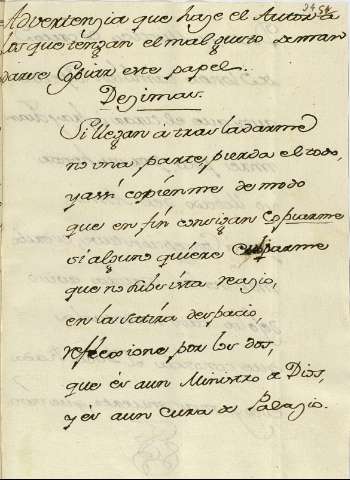 Advertenzia que haze el Autor a
los que tengan el mal gusto de man
darse Copiar este papel.
Dezimas.
Si llegan a trasladarme
no una parte pierda el todo,
y assi copienme de modo
que en fin consigan Copiarme
si alguno quiere culparme
que no hubo
en la satira despacio,
refleccione por los dos,
que es a un Ministro de Dios,
y es a un cura de Palazio.